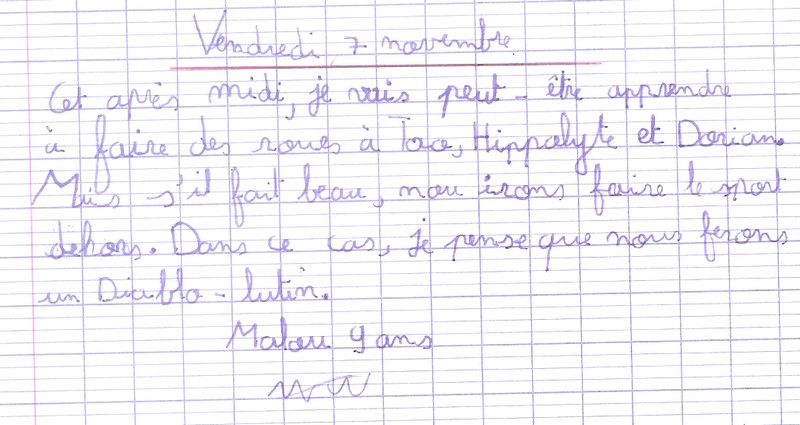 Vendredi 7 novembre.
Cet après midi, je vais peut-être apprendre
à faire des roues à Tao, Hippolyte et Dorian.
Mais s'il fait beau, nou irons faire le sport
dehors. Dans ce cas, je pense que nous ferons
un Diablo-lutin.
Malou 9 ans